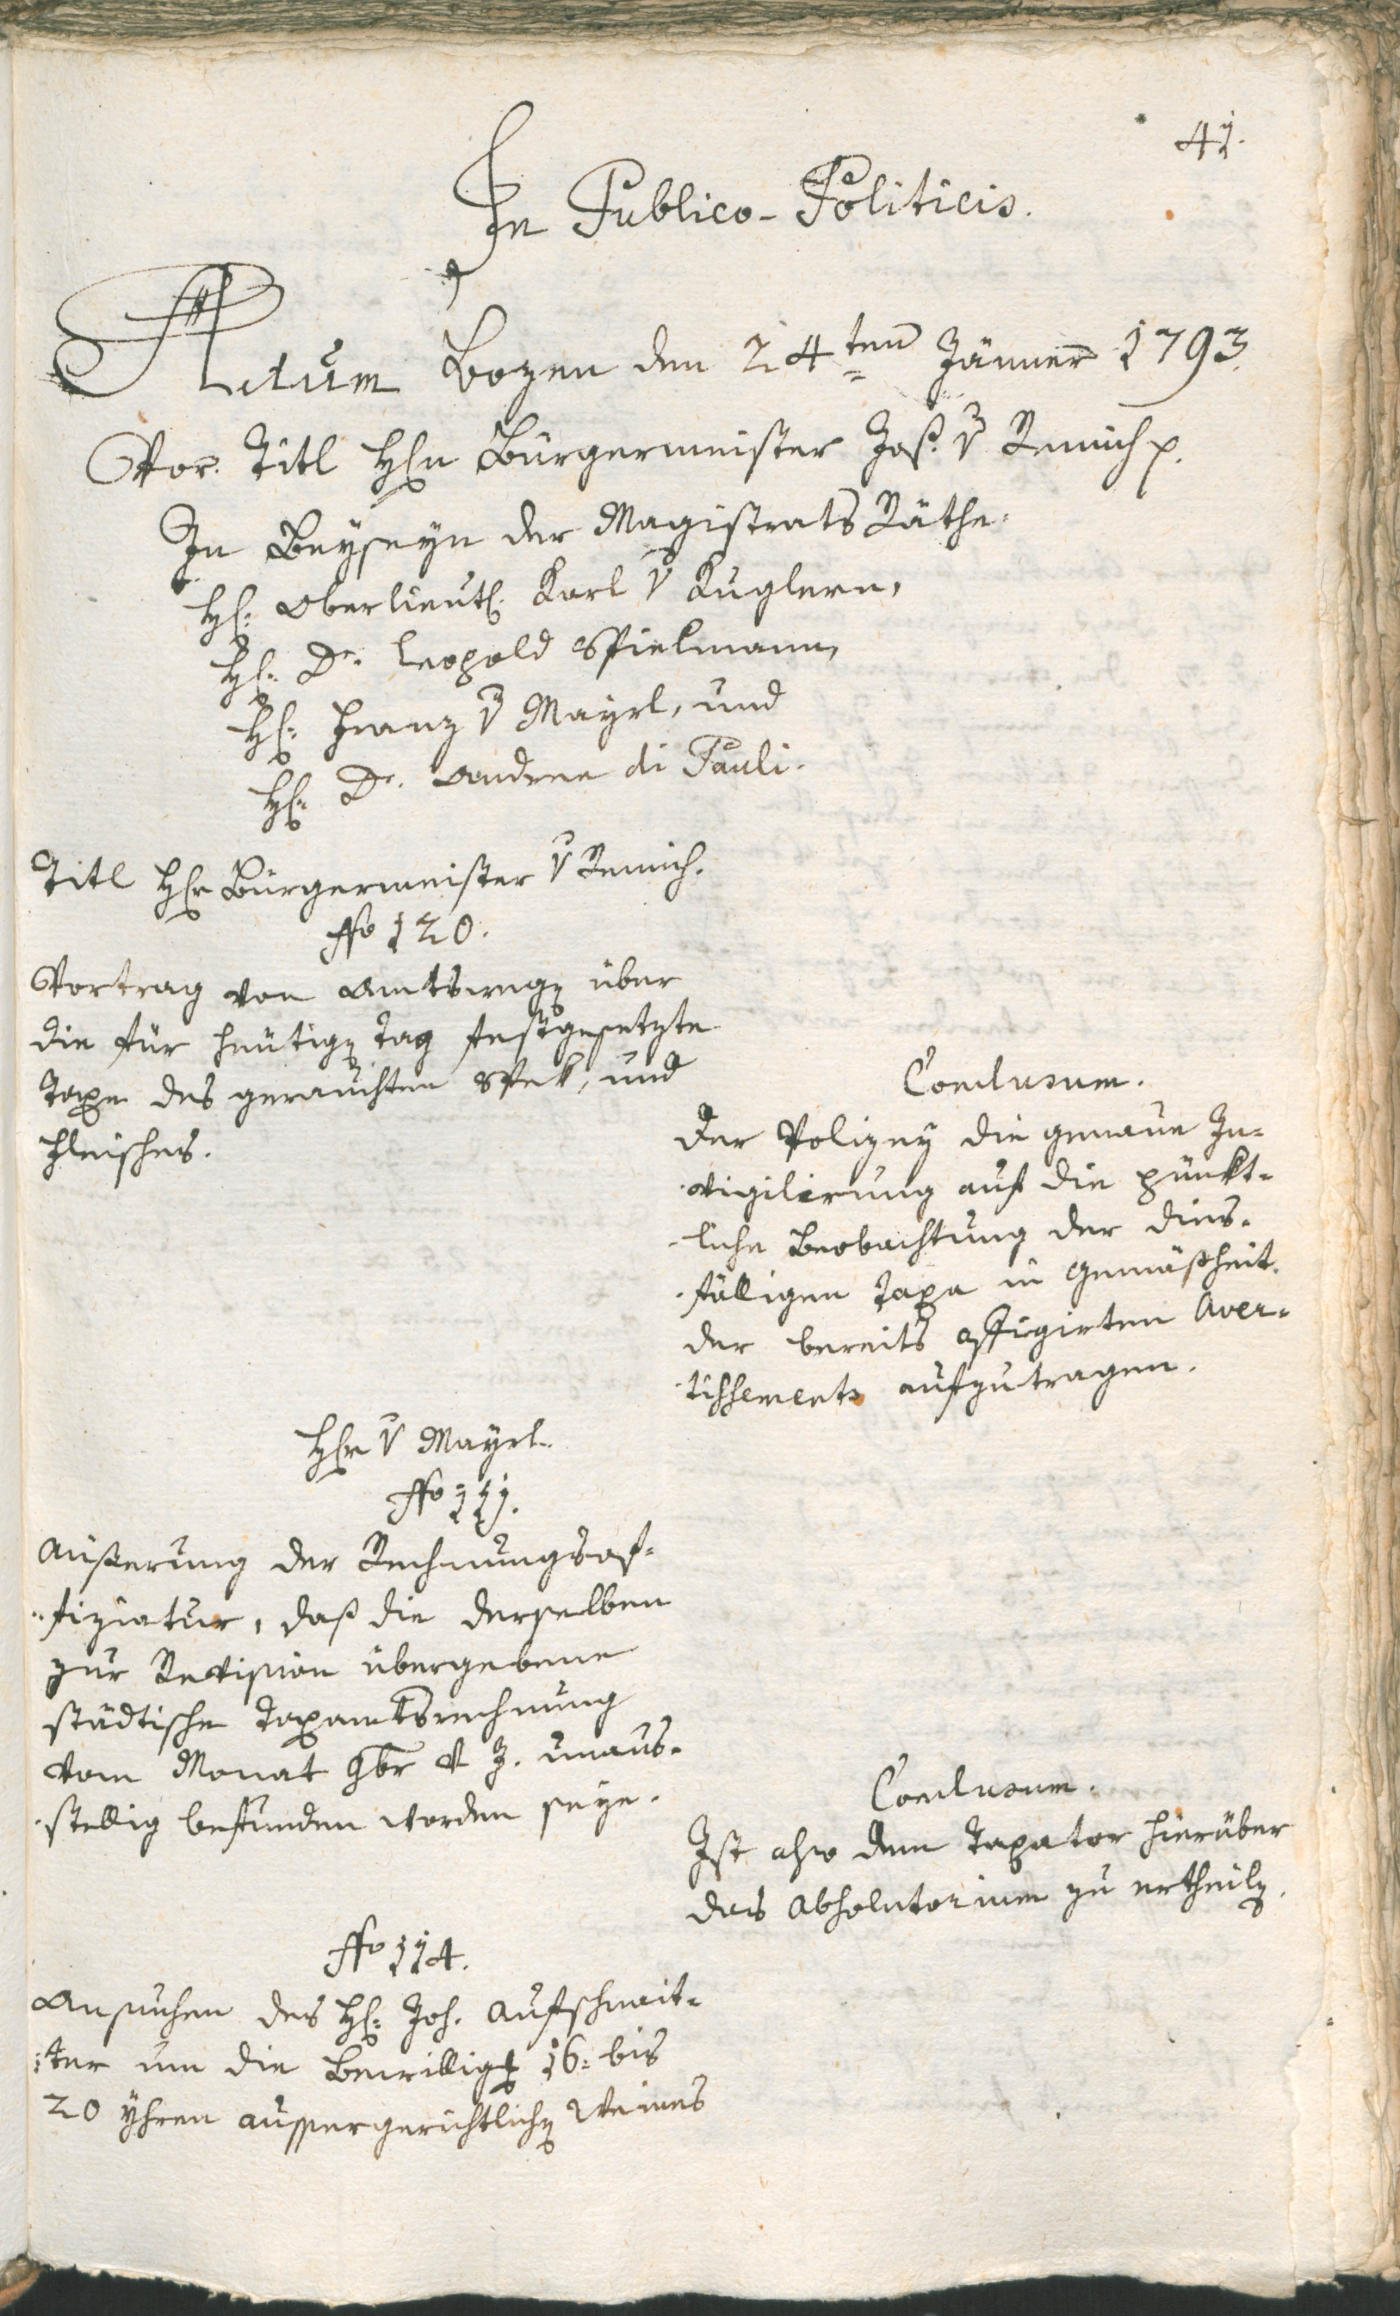 41.
In Publico-Politicis.
Actum Bozen den 24ten Jänner 1793.
Vor Titl H[errn] Bürgermeister Jos. v Remich p.
In Beyseyn der Magistrats Räthe.
H[err] Oberlieut[enant] Karl v Kuglern,
H[err] Dr. Leopold Spielmann,
H[err] Franz v Mayrl, und
H[err] Dr. Andree di Pauli.
Titl H[err] Bürgermeister v Remich.
No 120.
Vortrag von Amtsweg[en] über
die für heutig[en] Tag festgesetzte
Taxe des gerauchten Spek, und
Fleisches.
Conclusum.
Der Polizey die genaue In-
vigilirung auf die pünkt-
liche Beobachtung der dies-
fälligen Taxa in Gemäßheit
der bereits affigirten Aver-
tissements aufzutragen.
H[err] v Mayrl.
No 111.
Äusserung der Rechnungsof-
fiziatur, daß die derselben
zur Revision übergebene
städtische Taxamtsrechnung
vom Monat 9br v. J. unaus-
stellig befunden worden seye.
Conclusum.
Ist also dem Taxator hierüber
das Absolutorium zu ertheil[en].
No 114.
Ansuchen des H[errn] Joh. Aufschnait-
ter um die Bewillig[ung] 16: bis
20 Yhren aussergerichtlich[en] Weines